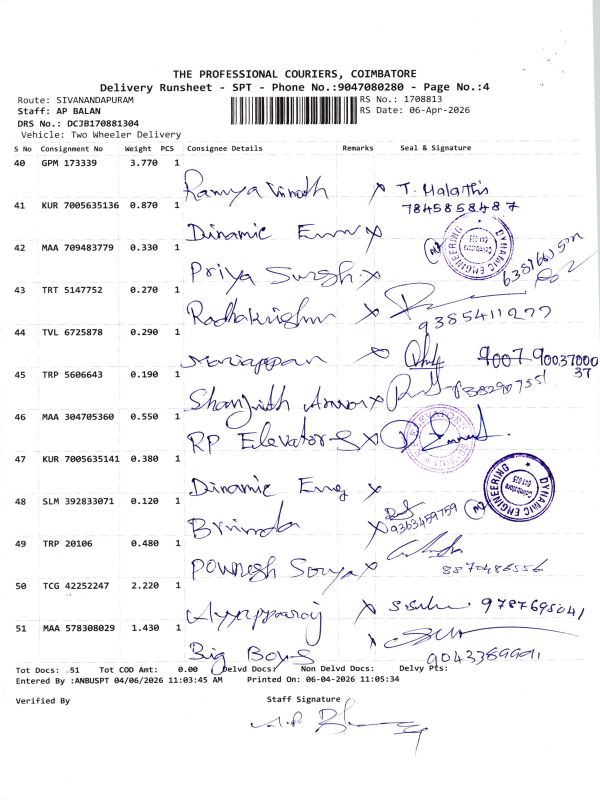 THE PROFESSIONAL COURIERS, COIMBATORE
Delivery Runsheet - SPT - Phone No.:9047080280 - Page No.:4
Route: SIVANANDAPURAM
RS No.: 1708813
Staff: AP BALAN
RS Date: 06-Apr-2026
DRS No.: DCJB170881304
Vehicle: Two Wheeler Delivery
S No Consignment No Weight PCS Consignee Details Remarks Seal & Signature
40 GPM 173339 3.770 1
Ramya Vinoth x T. Malathis
7845858487
41 KUR 7005635136 0.870 1
Dinamic Enng x
DYNAMIC ENGINEERING
42 MAA 709483779 0.330 1
Priya Suresh x
43 TRT 5147752 0.270 1
Radhakrishnan x
9385411277
44 TVL 6725878 0.290 1
Mariappan x 9007 90037000
37
45 TRP 5606643 0.190 1
Shanjith x
46 MAA 304705360 0.550 1
RP Elevators x
47 KUR 7005635141 0.380 1
Dinamic Eng x
DYNAMIC ENGINEERING
48 SLM 392833071 0.120 1
Brinda x 9363459759
49 TRP 20106 0.480 1
Pownesh Sorya x
8870486556
50 TCG 42252247 2.220 1
Ayyapparaj x 9787695041
51 MAA 578308029 1.430 1
Big Boys x
Tot Docs: 51 Tot COD Amt: 0.00 Delvd Docs: Non Delvd Docs: Delvy Pts:
Entered By :ANBUSPT 04/06/2026 11:03:45 AM Printed On: 06-04-2026 11:05:34
Verified By Staff Signature